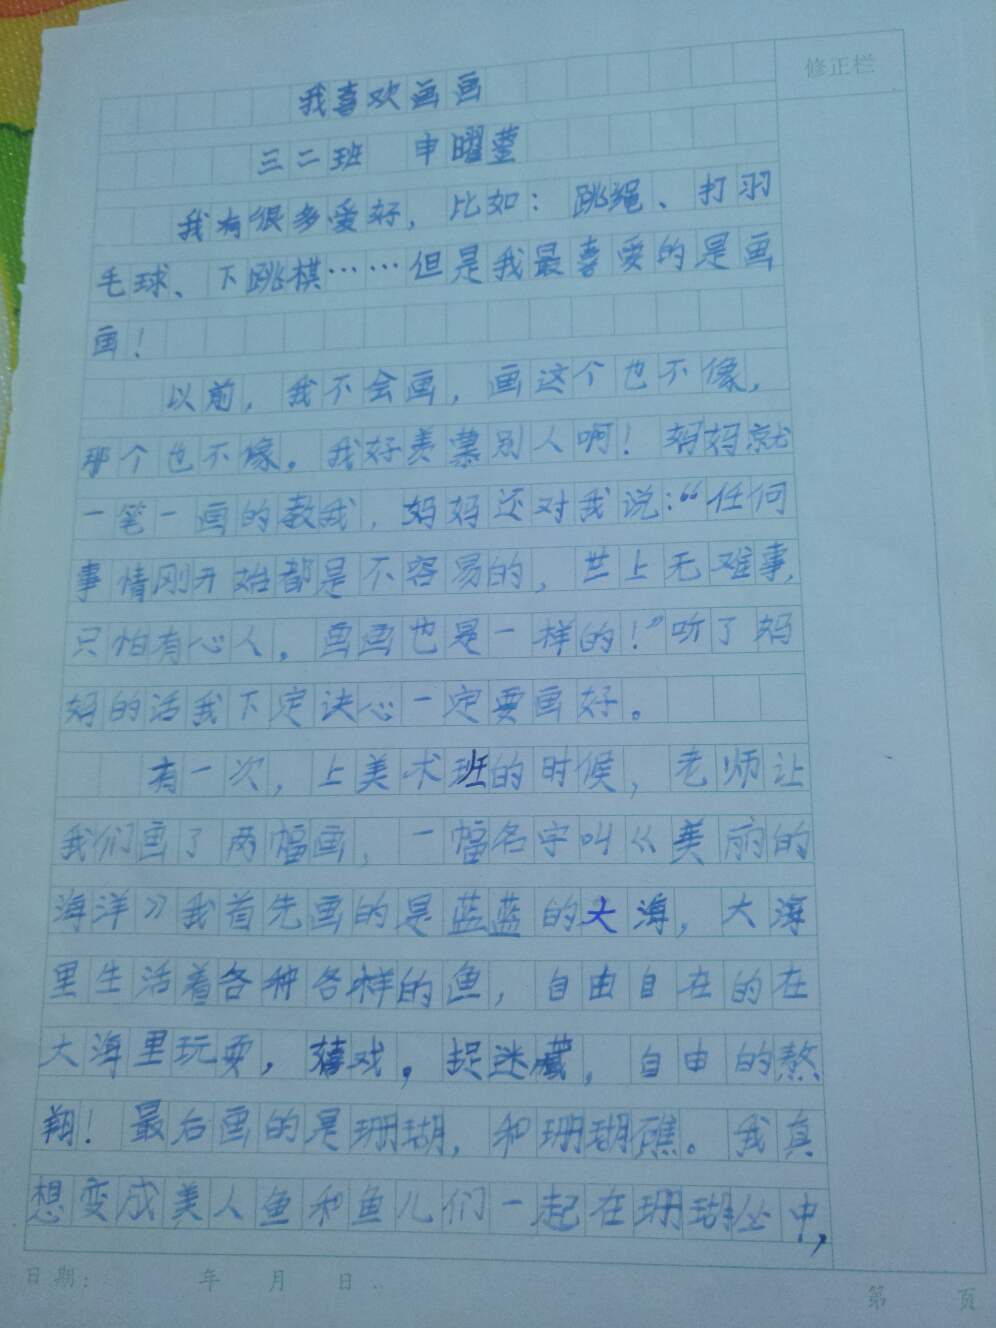 修正栏
我喜欢画画
三二班 申曜莹
我有很多爱好，比如：跳绳、打羽
毛球、下跳棋……但是我最喜爱的是画
画！
以前，我不会画，画这个也不像，
那个也不像。我好羡慕别人啊！妈妈就
一笔一画的教我，妈妈还对我说：“任何
事情刚开始都是不容易的，世上无难事，
只怕有心人。画画也是一样的！”听了妈
妈的话我下定决心一定要画好。
有一次，上美术班的时候，老师让
我们画了两幅画，一幅名字叫《美丽的
海洋》我首先画的是蓝蓝的大海，大海
里生活着各种各样的鱼，自由自在的在
大海里玩耍，嬉戏。捉迷藏，自由的熬
翔！最后画的是珊瑚，和珊瑚礁。我真
想变成美人鱼和鱼儿们一起在珊瑚丛中，
日期： 年 月 日.
第 页